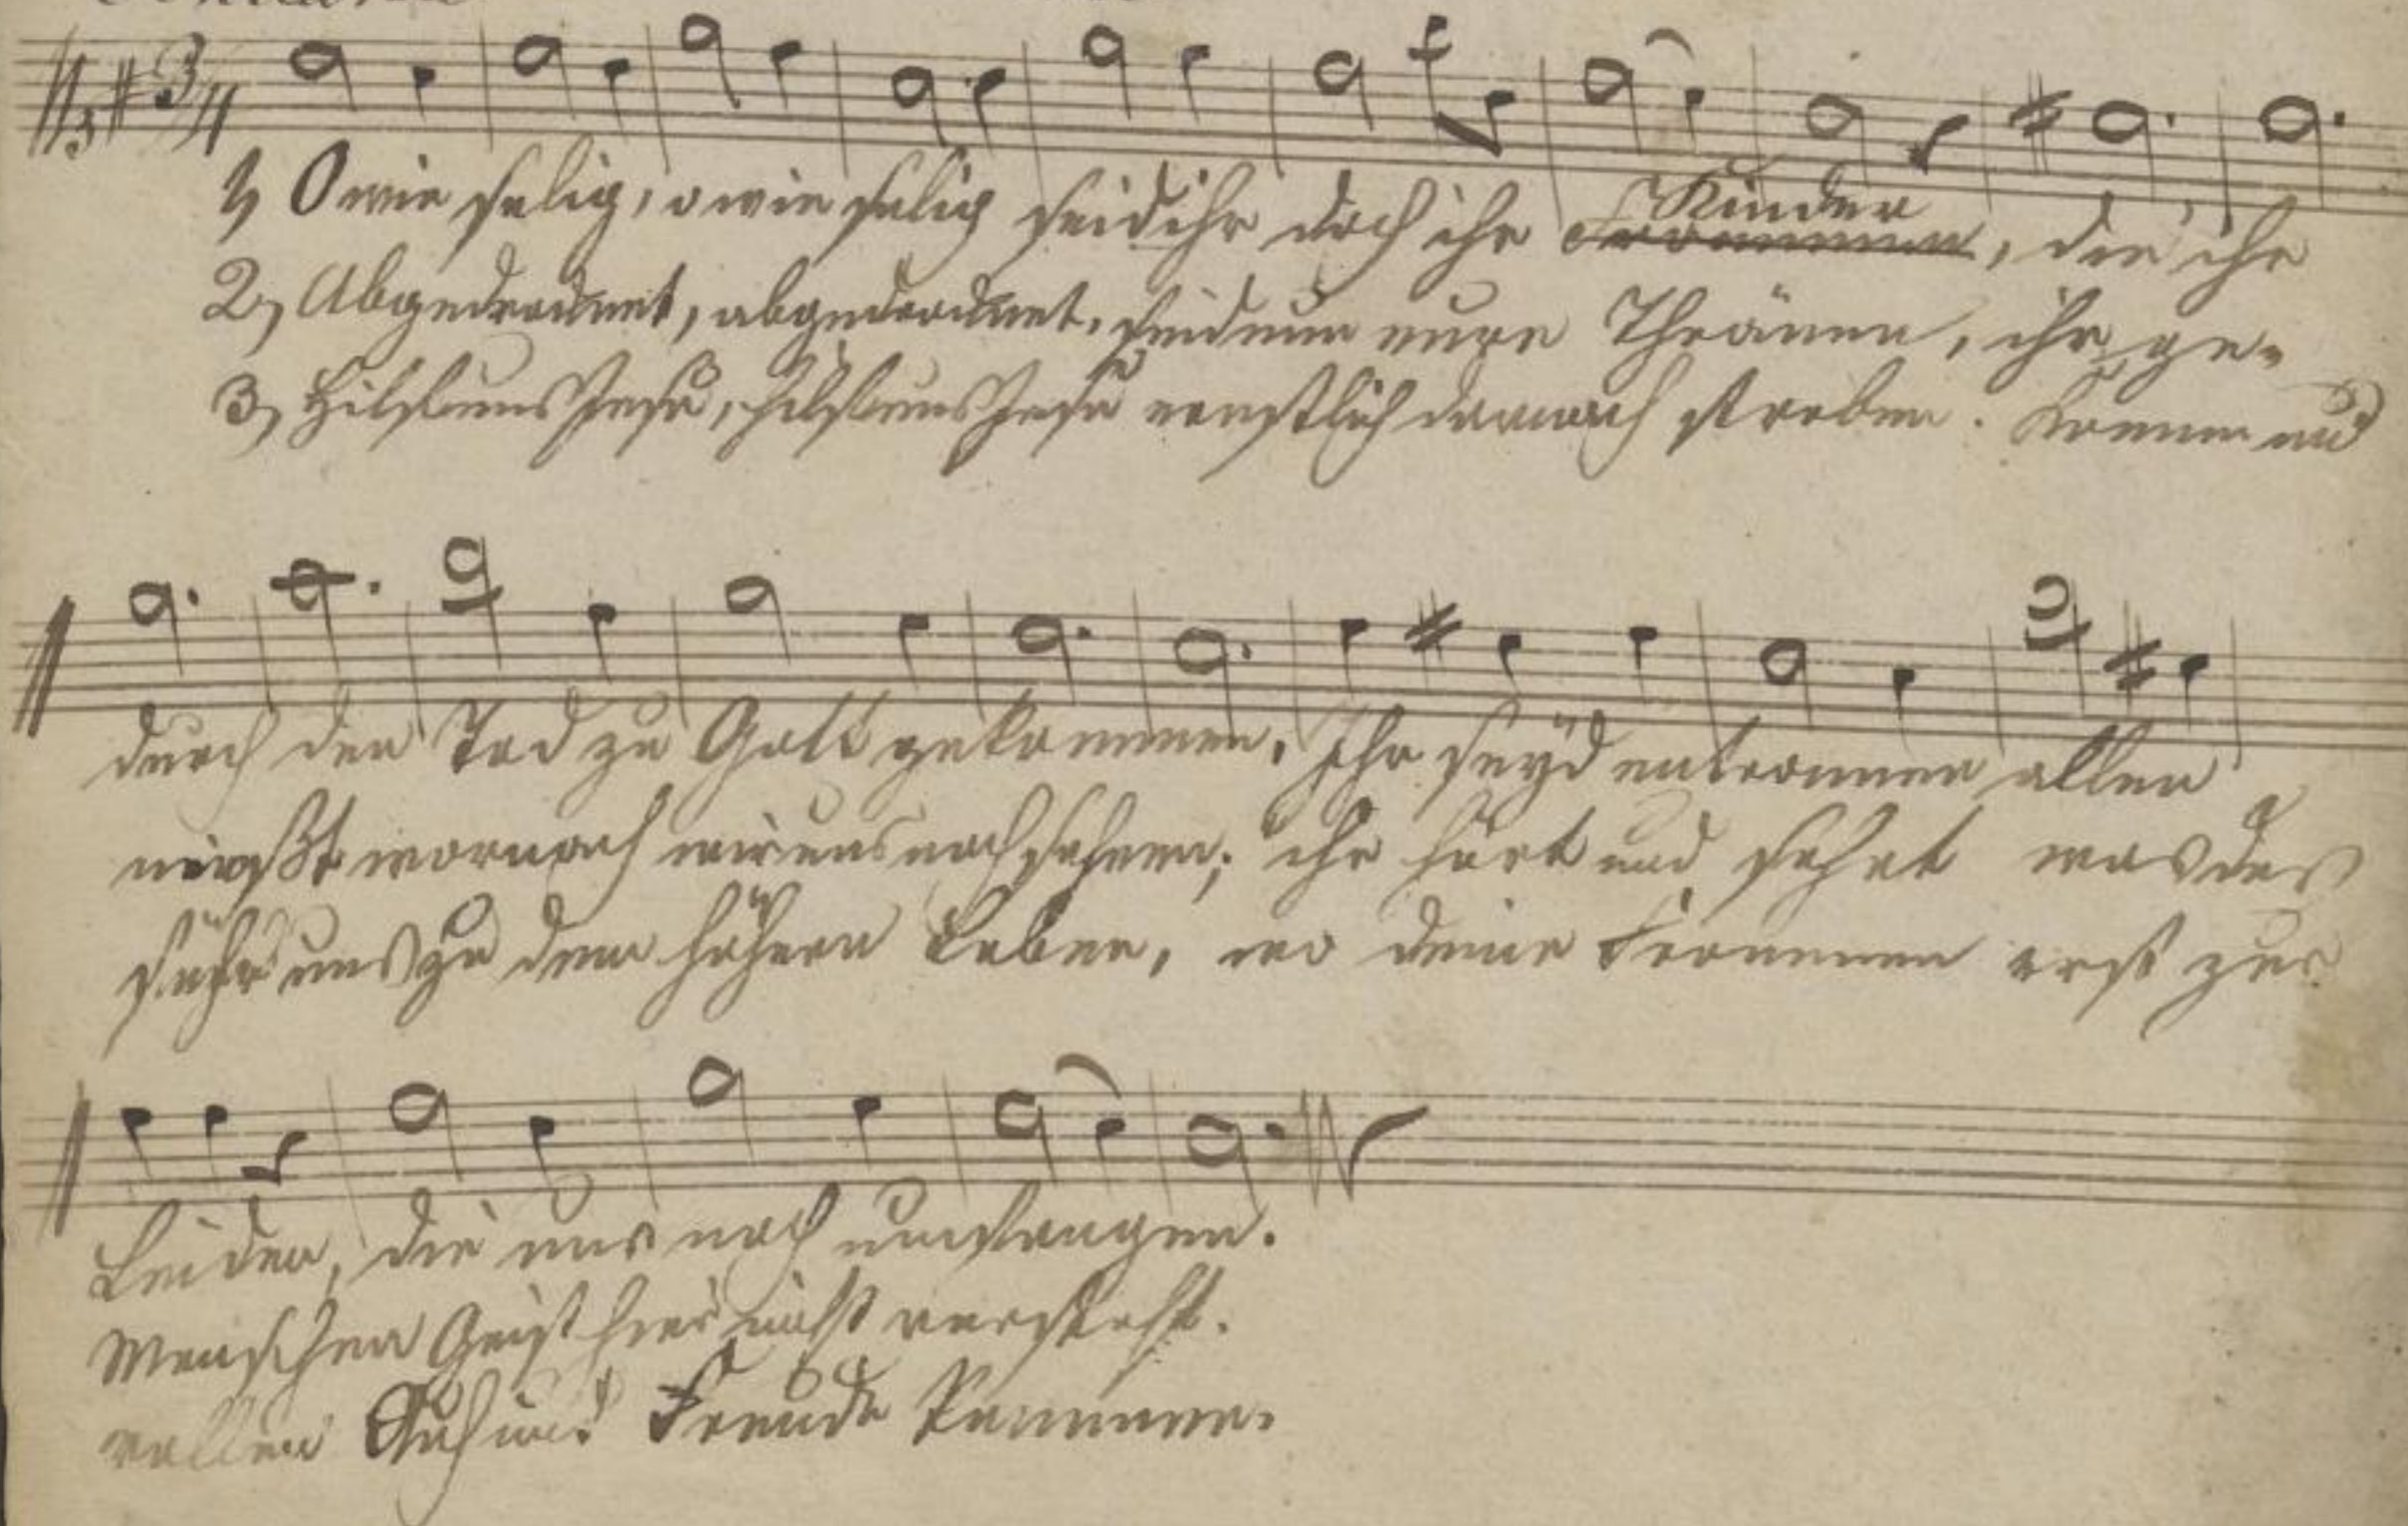 1, O wie selig, o wie selig seid ihr doch ihr Frommen, die ihr
Kinder
2, Abgedrocknet, abgedrocknet, seid nun eure Thränen, ihr ge-
3, Hilf uns Jesu, hilf uns Jesu ernstlich darnach streben. Komm und
durch den Tod zu Gott gekommen. Ihr seyd entronnen allen
nießt wornach wir uns noch sehnen; ihr hört und sehet was des
führ uns zu dem höhern Leben, wo deine Frommen erst zur
Leiden, die uns noch umfangen.
Menschen Geist hier nicht versteht.
vollen Ruh und Freude kommen.